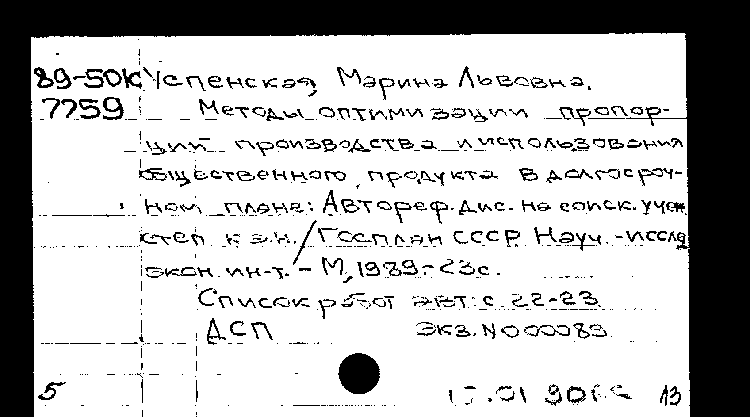 89-50К Успенская, Марина Львовна.
7759 Методы оптимизации пропор-
ций производства и использования
общественного продукта в долгосроч-
ном плане: Автореф. дис. на соиск. учен
степ к.э.н. / Госплан СССР Науч.-иссл
экон. ин-т. - М, 1989-23с.
Список работ авт: с 22-23
ДСП Экз. N 000083
5 13